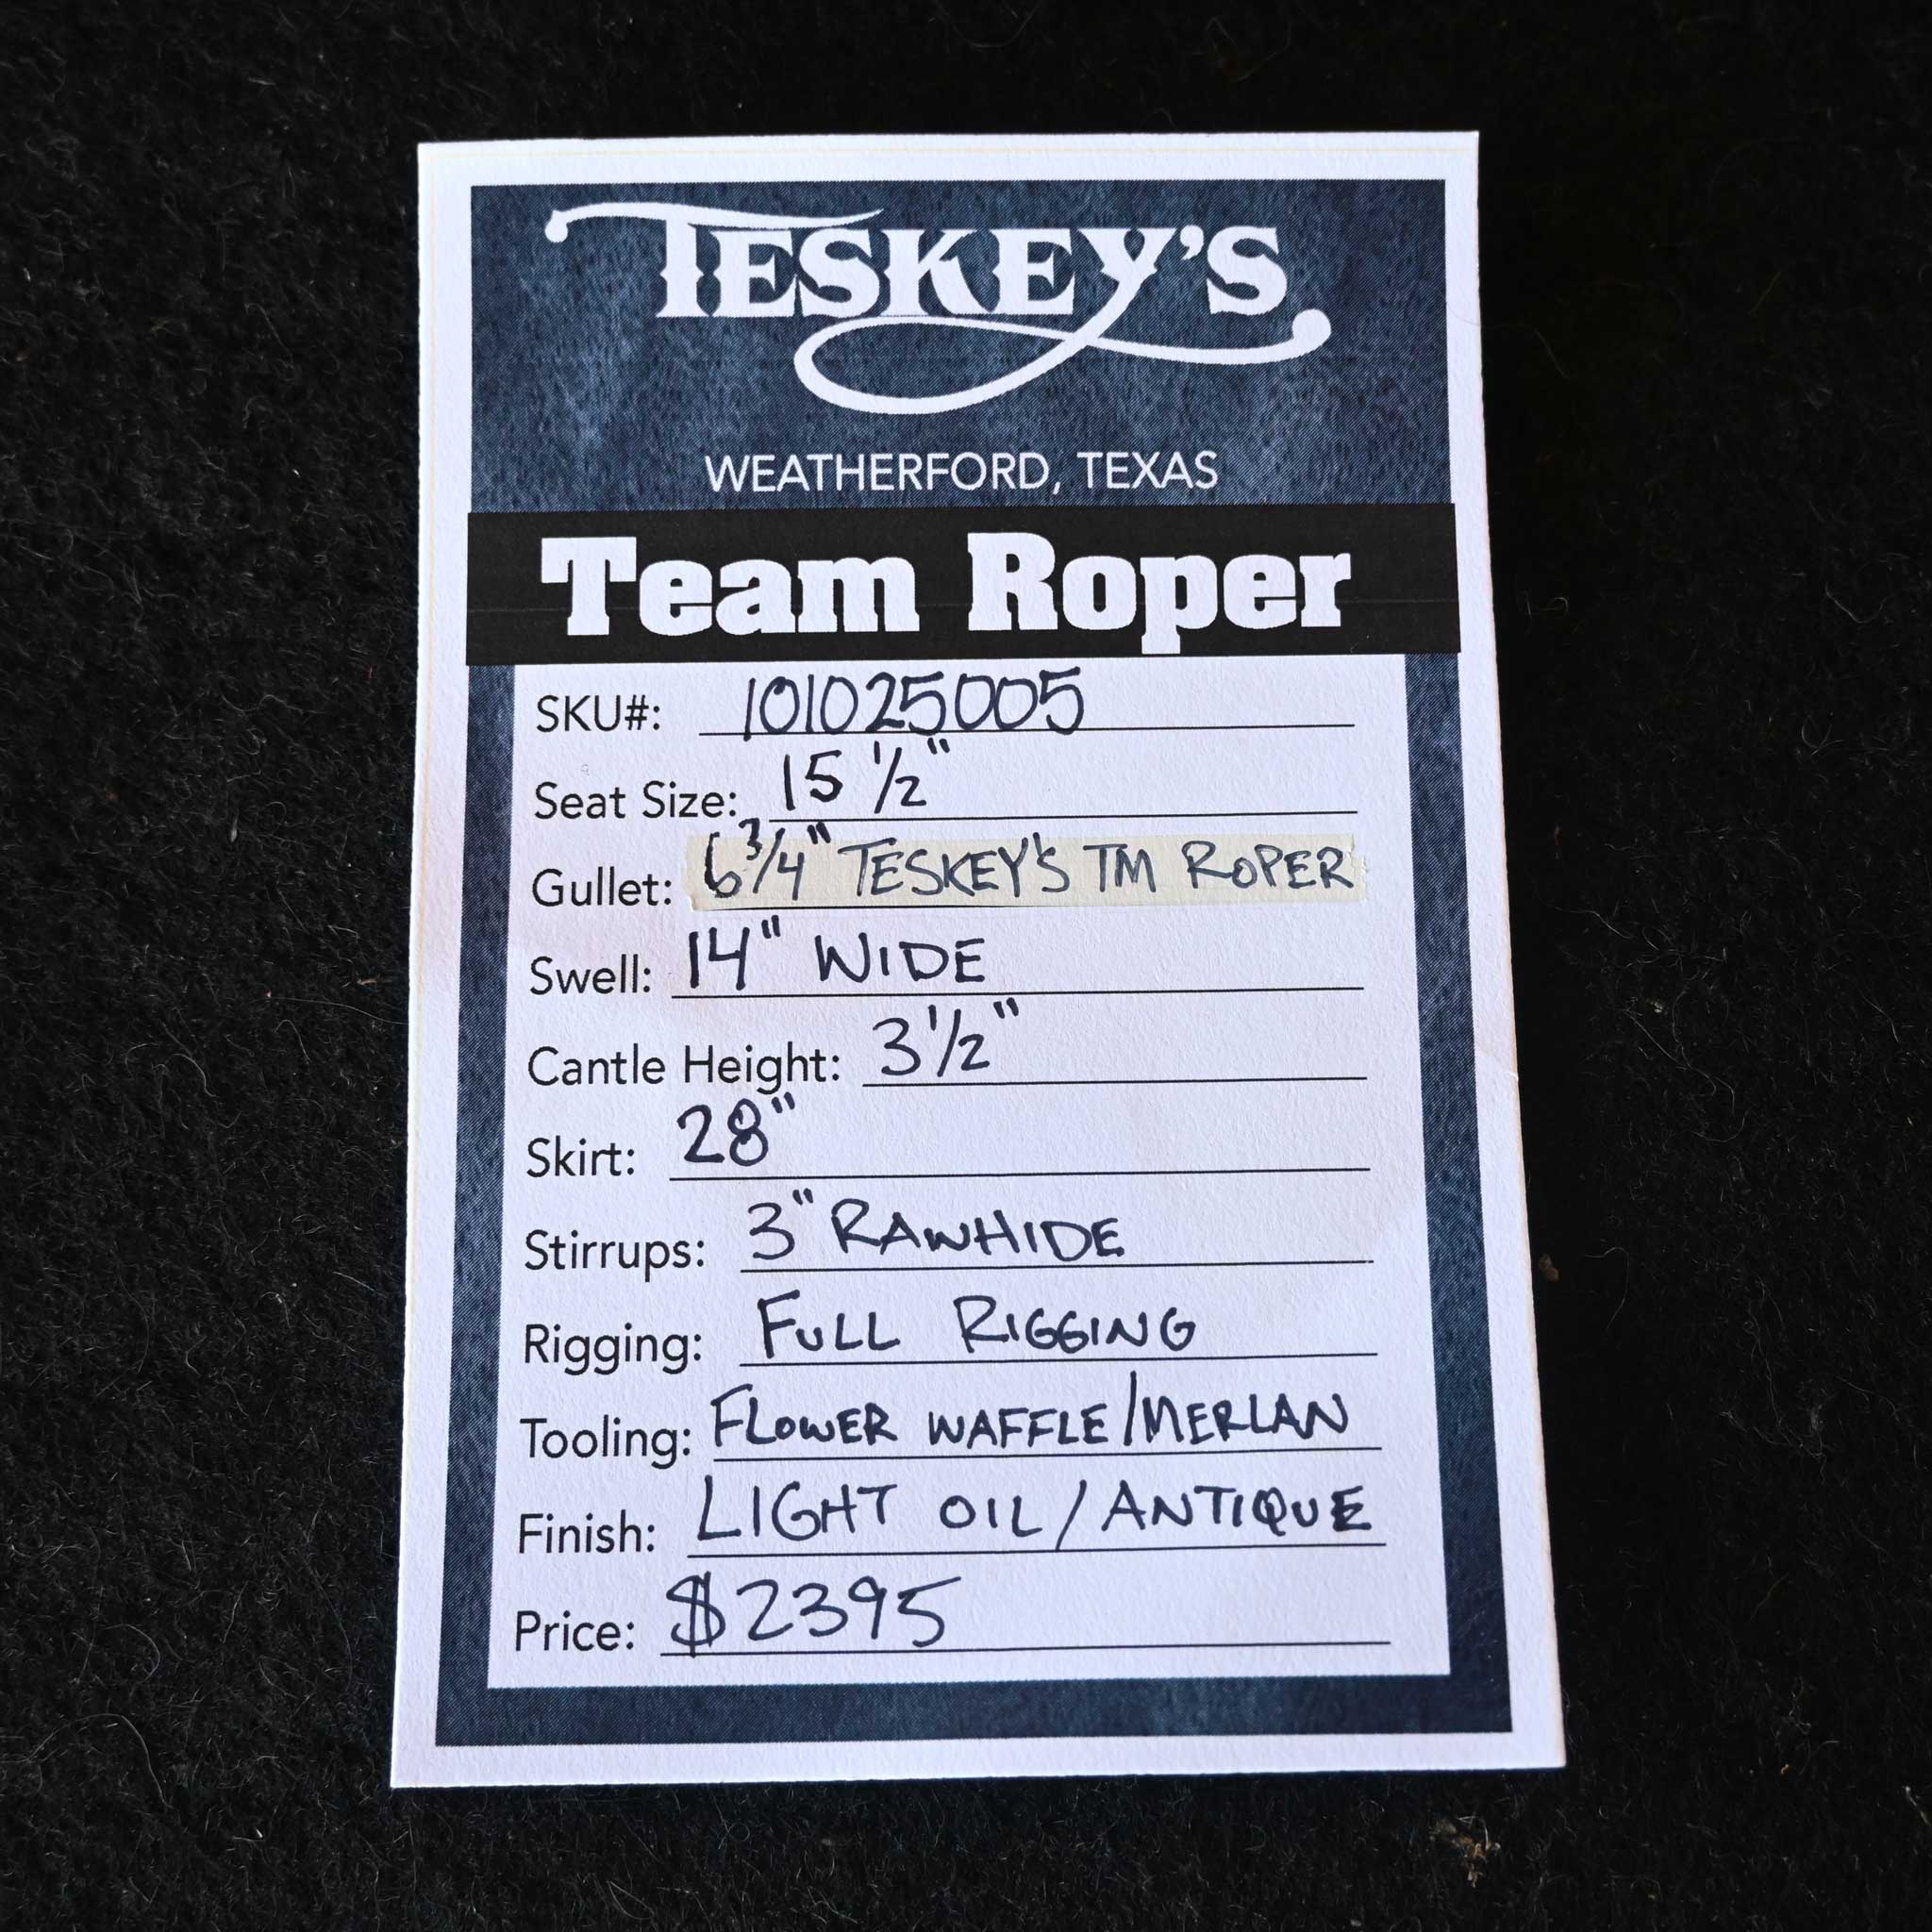 TESKEY'S
WEATHERFORD, TEXAS
Team Roper
SKU#: 101025005
Seat Size: 15 1/2"
Gullet: 6 3/4" TESKEY'S TM ROPER
Swell: 14" WIDE
Cantle Height: 3 1/2"
Skirt: 28"
Stirrups: 3" RAWHIDE
Rigging: FULL RIGGING
Tooling: FLOWER WAFFLE/MERLAN
Finish: LIGHT OIL/ANTIQUE
Price: $2395